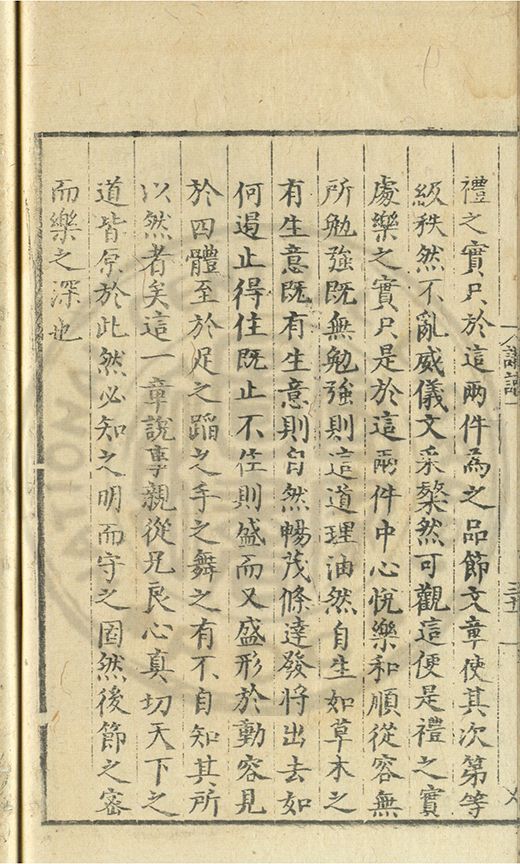 禮之實只於這兩件為之品節文章使其次第等
級秩然不亂威儀文采粲然可觀這便是禮之實
處樂之實只是於這兩件中心悅樂和順從容無
所勉強既無勉強則這道理油然自生如草木之
有生意既有生意則自然暢茂條達發將出去如
何遏止得住既止不住則盛而又盛形於動容見
於四體至於足之蹈之手之舞之有不自知其所
以然者矣這一章說事親從兄良心真切天下之
道皆原於此然必知之明而守之固然後節之密
而樂之深也